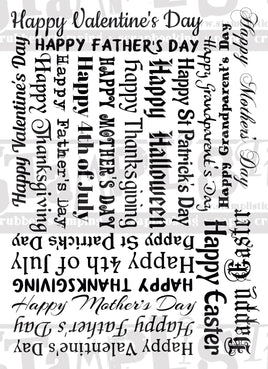 Happy Valentine's Day
HAPPY FATHER'S DAY
Happy Valentine's Day
Happy Thanksgiving
Happy Father's Day
Happy 4th of July
HAPPY MOTHER'S DAY
Happy Thanksgiving
Happy Halloween
Happy St Patrick's Day
Happy Grandparent's Day
Happy Grandparent's Day
Happy Mother's Day
Happy Easter
Happy Easter
Happy St Patrick's Day
Happy 4th of July
HAPPY THANKSGIVING
Happy Mother's Day
Happy Father's Day
Happy Valentine's Day